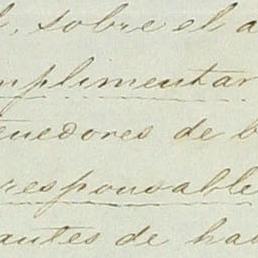 l, sobre el a
mplimentar
enedores de b
responsable
antes de hab